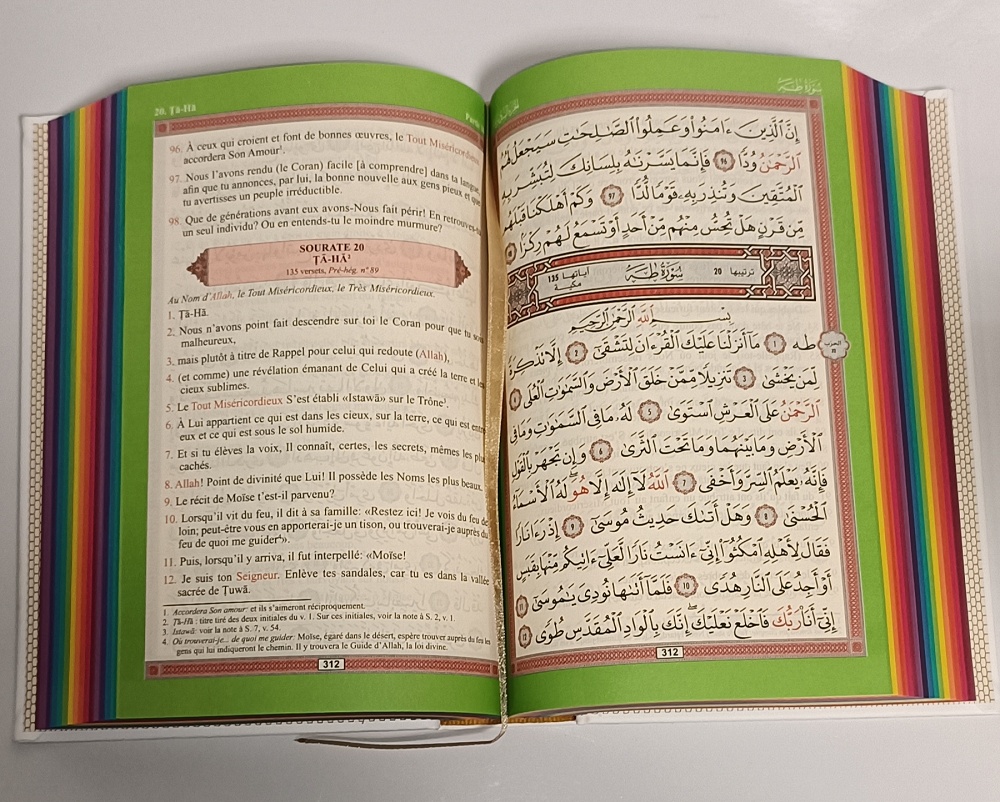 20. Ṭā-Hā
96. À ceux qui croient et font de bonnes œuvres, le Tout Miséricordieux
accordera Son Amour¹.
97. Nous l'avons rendu (le Coran) facile [à comprendre] dans ta langue,
afin que tu annonces, par lui, la bonne nouvelle aux gens pieux et que
tu avertisses un peuple irréductible.
98. Que de générations avant eux avons-Nous fait périr! En retrouves-tu
un seul individu? Ou en entends-tu le moindre murmure?
SOURATE 20
ṬĀ-HĀ²
135 versets, Pré-hég. n° 89
Au Nom d'Allah, le Tout Miséricordieux, le Très Miséricordieux.
1. Ṭā-Hā.
2. Nous n'avons point fait descendre sur toi le Coran pour que tu sois
malheureux,
3. mais plutôt à titre de Rappel pour celui qui redoute (Allah),
4. (et comme) une révélation émanant de Celui qui a créé la terre et les
cieux sublimes.
5. Le Tout Miséricordieux S'est établi «Istawā» sur le Trône³.
6. À Lui appartient ce qui est dans les cieux, sur la terre, ce qui est entre
eux et ce qui est sous le sol humide.
7. Et si tu élèves la voix, Il connaît, certes, les secrets, mêmes les plus
cachés.
8. Allah! Point de divinité que Lui! Il possède les Noms les plus beaux.
9. Le récit de Moïse t'est-il parvenu?
10. Lorsqu'il vit du feu, il dit à sa famille: «Restez ici! Je vois du feu de
loin; peut-être vous en apporterai-je un tison, ou trouverai-je auprès du
feu de quoi me guider⁴».
11. Puis, lorsqu'il y arriva, il fut interpellé: «Moïse!
12. Je suis ton Seigneur. Enlève tes sandales, car tu es dans la vallée
sacrée de Ṭuwā.
1. Accordera Son amour: et ils s'aimeront réciproquement.
2. Ṭā-Hā : titre tiré des deux initiales du v. 1. Sur ces initiales, voir la note à S. 2, v. 1.
3. Istawā: voir la note à S. 7, v. 54.
4. Où trouverai-je... de quoi me guider: Moïse, égaré dans le désert, espère trouver auprès du feu les
gens qui lui indiqueront le chemin. Il y trouvera le Guide d'Allah, la loi divine.
312
سورة طه
إِنَّ ٱلَّذِينَ ءَامَنُوا۟ وَعَمِلُوا۟ ٱلصَّـٰلِحَـٰتِ سَيَجْعَلُ لَهُمُ
ٱلرَّحْمَـٰنُ وُدًّا ٩٦ فَإِنَّمَا يَسَّرْنَـٰهُ بِلِسَانِكَ لِتُبَشِّرَ بِهِ
ٱلْمُتَّقِينَ وَتُنذِرَ بِهِۦ قَوْمًا لُّدًّا ٩٧ وَكَمْ أَهْلَكْنَا قَبْلَهُم
مِّن قَرْنٍ هَلْ تُحِسُّ مِنْهُم مِّنْ أَحَدٍ أَوْ تَسْمَعُ لَهُمْ رِكْزًۢا ٩٨
ترتيبها 20 سُورَةُ طه آياتها 135 مكية
بِسْمِ ٱللَّهِ ٱلرَّحْمَـٰنِ ٱلرَّحِيمِ
طه ١ مَآ أَنزَلْنَا عَلَيْكَ ٱلْقُرْءَانَ لِتَشْقَىٰٓ ٢ إِلَّا تَذْكِرَةً
الحزب
لِّمَن يَخْشَىٰ ٣ تَنزِيلًا مِّمَّنْ خَلَقَ ٱلْأَرْضَ وَٱلسَّمَـٰوَٰتِ ٱلْعُلَى ٤
ٱلرَّحْمَـٰنُ عَلَى ٱلْعَرْشِ ٱسْتَوَىٰ ٥ لَهُۥ مَا فِى ٱلسَّمَـٰوَٰتِ وَمَا فِى
ٱلْأَرْضِ وَمَا بَيْنَهُمَا وَمَا تَحْتَ ٱلثَّرَىٰ ٦ وَإِن تَجْهَرْ بِٱلْقَوْلِ
فَإِنَّهُۥ يَعْلَمُ ٱلسِّرَّ وَأَخْفَى ٧ ٱللَّهُ لَآ إِلَـٰهَ إِلَّا هُوَ ۖ لَهُ ٱلْأَسْمَآءُ
ٱلْحُسْنَىٰ ٨ وَهَلْ أَتَىٰكَ حَدِيثُ مُوسَىٰٓ ٩ إِذْ رَءَا نَارًا
فَقَالَ لِأَهْلِهِ ٱمْكُثُوٓا۟ إِنِّىٓ ءَانَسْتُ نَارًا لَّعَلِّىٓ ءَاتِيكُم مِّنْهَا بِقَبَسٍ
أَوْ أَجِدُ عَلَى ٱلنَّارِ هُدًى ١٠ فَلَمَّآ أَتَىٰهَا نُودِىَ يَـٰمُوسَىٰٓ ١١
إِنِّىٓ أَنَا۠ رَبُّكَ فَٱخْلَعْ نَعْلَيْكَ ۖ إِنَّكَ بِٱلْوَادِ ٱلْمُقَدَّسِ طُوًى ١٢
312